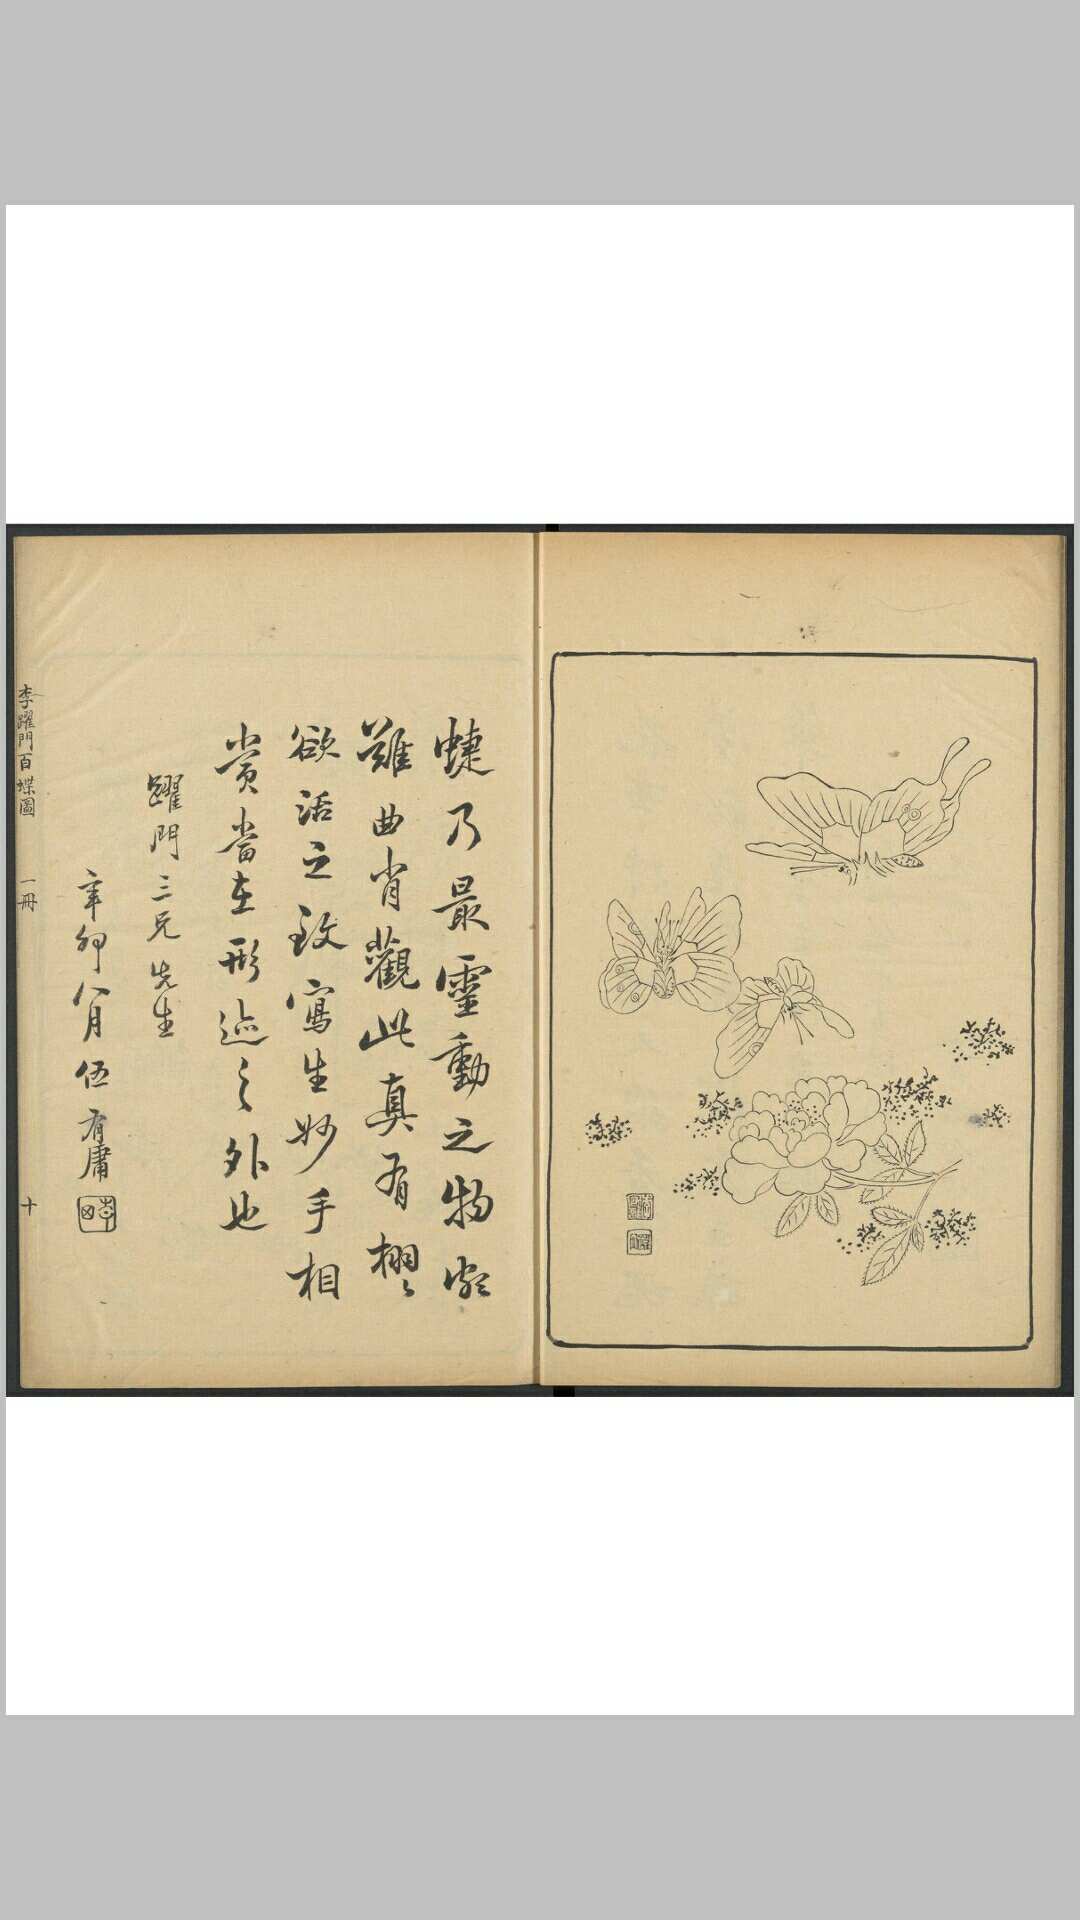 蜨乃最靈動之物
難曲肖觀此真有栩〻
欲活之致寫生妙手相
賞當在形迹之外也
躍門三兄先生
辛卯八月伍有庸
李躍門百蝶圖 一冊 十